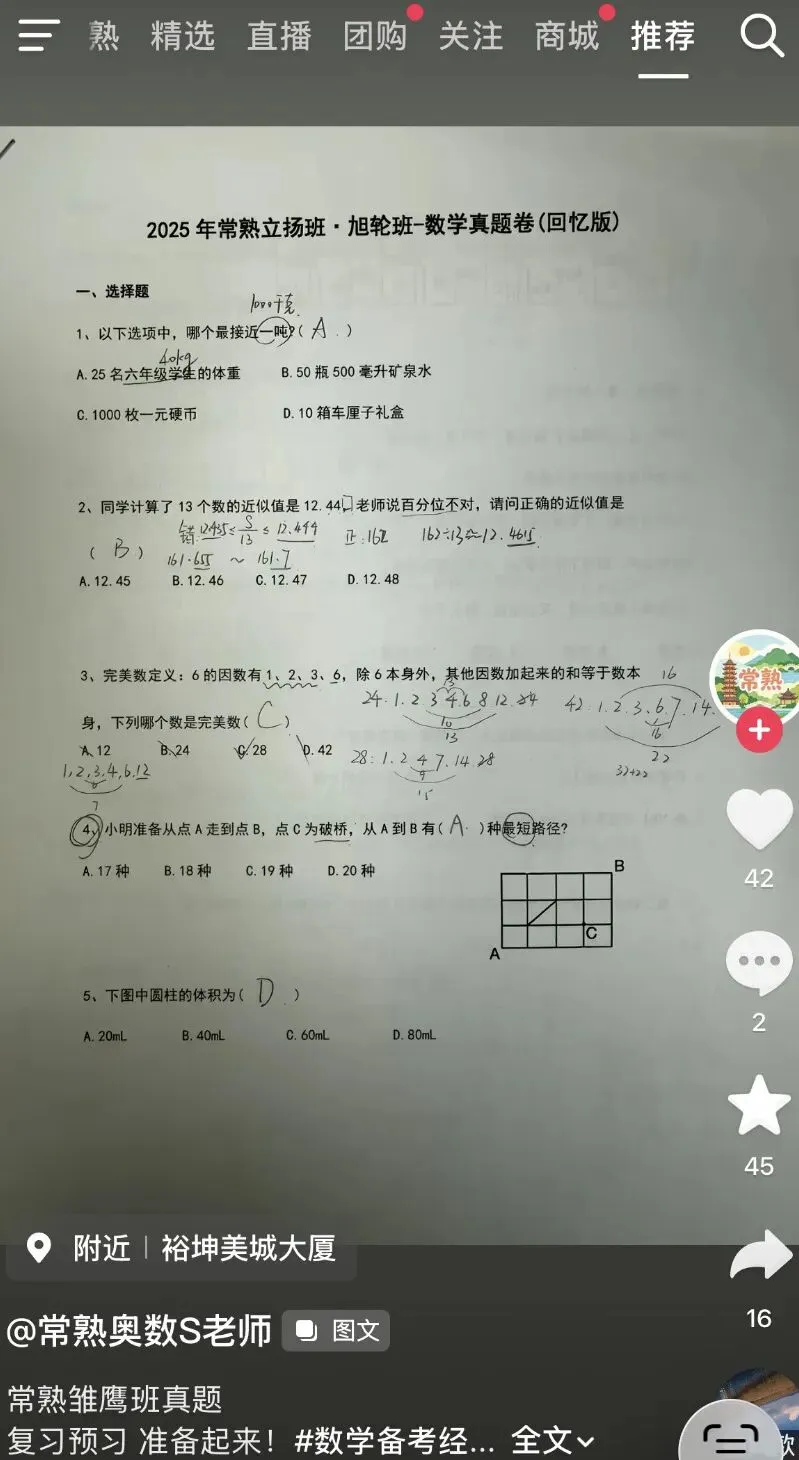 熟 精选 直播 团购 关注 商城 推荐
2025年常熟立扬班·旭轮班-数学真题卷(回忆版)
一、选择题
1000千克
1、以下选项中，哪个最接近一吨?( A )
40kg
A.25名六年级学生的体重 B.50瓶500毫升矿泉水
C.1000枚一元硬币 D.10箱车厘子礼盒
2、同学计算了13个数的近似值是12.44，老师说百分位不对，请问正确的近似值是
错:12.435≤S/13≤12.444 正:162 162÷13≈12.4615
( B ) 161.655 ~ 161.7
A.12.45 B.12.46 C.12.47 D.12.48
3、完美数定义：6的因数有1、2、3、6，除6本身外，其他因数加起来的和等于数本
16
24.1.2 3 4.6 8 12.24 42:1.2.3.6.7.14.
身，下列哪个数是完美数( C )
10
13
16
22
A.12 B.24 C.28 D.42
28:1.2 4 7.14.28
32+22
1,2,3,4,6.12
9
15
7
4、小明准备从点A走到点B，点C为破桥，从A到B有( A )种最短路径?
A.17种 B.18种 C.19种 D.20种
B
C
A
5、下图中圆柱的体积为( D )
A.20mL B.40mL C.60mL D.80mL
常熟
42
2
45
16
附近 | 裕坤美城大厦
@常熟奥数S老师 图文
常熟雏鹰班真题
复习预习 准备起来！#数学备考经... 全文